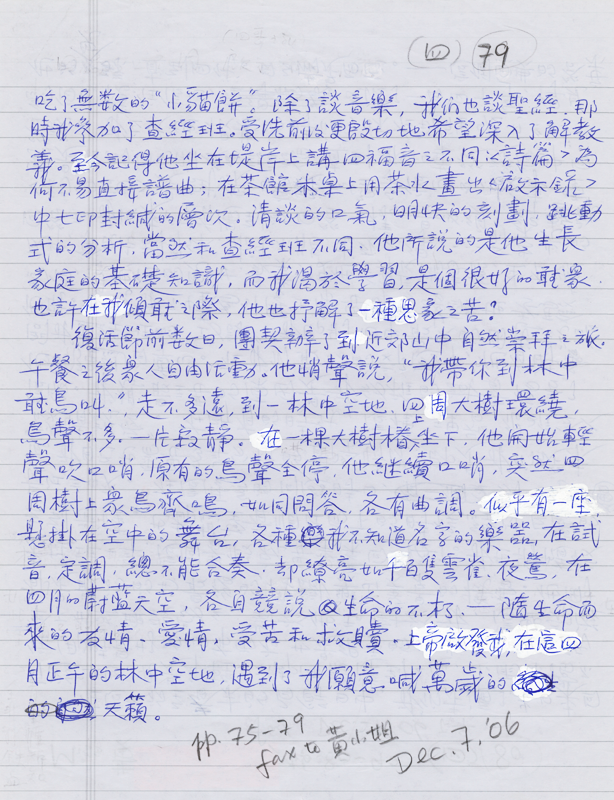 (四) 79
吃了無数的“小貓餅”。除了談音樂，我們也談聖經，那
時我參加了查經班。受洗前後更殷切地希望深入了解教
義。至今記得他坐在堤岸上講四福音之不同，《詩篇》為
何不易直接譜曲；在茶館木桌上用茶水畫出《啟示錄》
中七印封緘的層次。清談的口氣，明快的刻劃，跳動
式的分析，當然和查經班不同。他所說的是他生長
家庭的基礎知識，而我渴於學習，是個很好的聽眾。
也許在我傾聽之際，他也抒解了一種思家之苦？
復活節前数日，團契辦了到近郊山中自然崇拜之旅。
午餐之後眾人自由活動。他悄聲說，“我帶你到林中
聽鳥叫。”，走不多遠，到一林中空地，四周大樹環繞，
鳥聲不多。一片寂靜。在一棵大樹樁上坐下，他開始輕
聲吹口哨，原有的鳥聲全停，他繼續口哨，突然四
周樹上眾鳥齊鳴，如同問答，各有曲調。似乎有一座
懸掛在空中的舞台，各種我不知道名字的樂器，在試
音，定調，總不能合奏，却繚亮如千百隻雲雀、夜鶯，在
四月的蔚藍天空，各自競說生命的不朽，一隨生命而
來的友情、愛情，受苦和救贖。上帝啟發我，在這四
月正午的林中空地，遇到了我願意喊萬歲的
天籟。
pp. 75-79
fax to 黃小姐
Dec. 7, '06